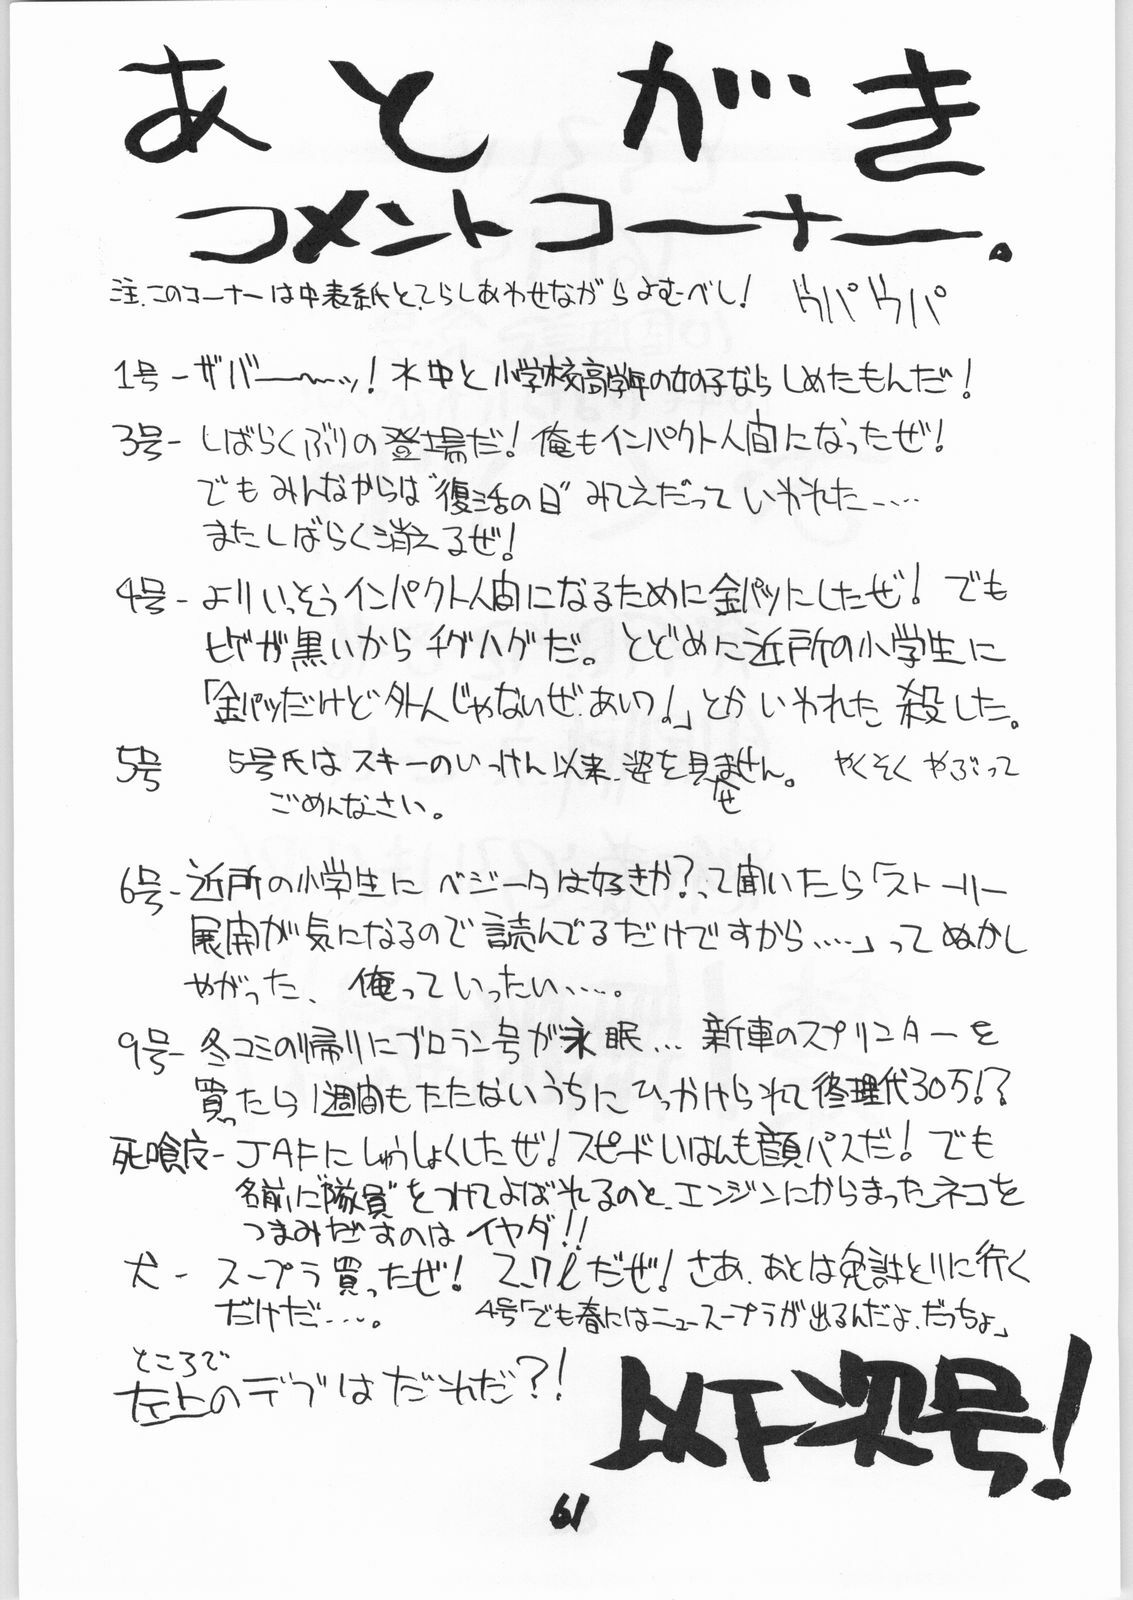 あとがき
コメントコーナー。
注.このコーナーは中表紙とてらしあわせながらよむべし! ウパウパ
1号-ザバー〜〜ッ! 水中と小学校高学年の女の子ならしめたもんだ!
3号-しばらくぶりの登場だ! 俺もインパクト人間になったぜ!
でもみんなからは"復活の日"みてえだっていわれた……
またしばらく消えるぜ!
4号-よりいっそうインパクト人間になるために金パツにしたぜ! でも
ヒゲが黒いからチグハグだ。とどめに近所の小学生に
「金パツだけど外人じゃないぜ.あいつ!」とかいわれた 殺した。
5号 5号氏はスキーのいっけん以来、姿を見ません。 やくそくやぶって
せ
ごめんなさい。
6号-近所の小学生にベジータは好きか?って聞いたら「ストーリー
展開が気になるので読んでるだけですから……」ってぬかし
やがった、俺っていったい……。
9号-冬コミの帰りにブロラン号が永眠… 新車のスプリンターを
買ったら1週間もたたないうちにひっかけられて修理代30万!?
死喰皮-JAFにしゅうしょくしたぜ!スピードいはんも顔パスだ! でも
名前に"隊員"をつけてよばれるのと、エンジンにからまったネコを
つまみだすのはイヤダ!!
犬-スープラ買ったぜ! 2.7ℓだぜ! さあ、あとは免許とりに行く
だけだ……。 4号「でも春にはニュースープラが出るんだよ.だっちょ」
ところで
左上のデブはだれだ?!
以下次号!
61